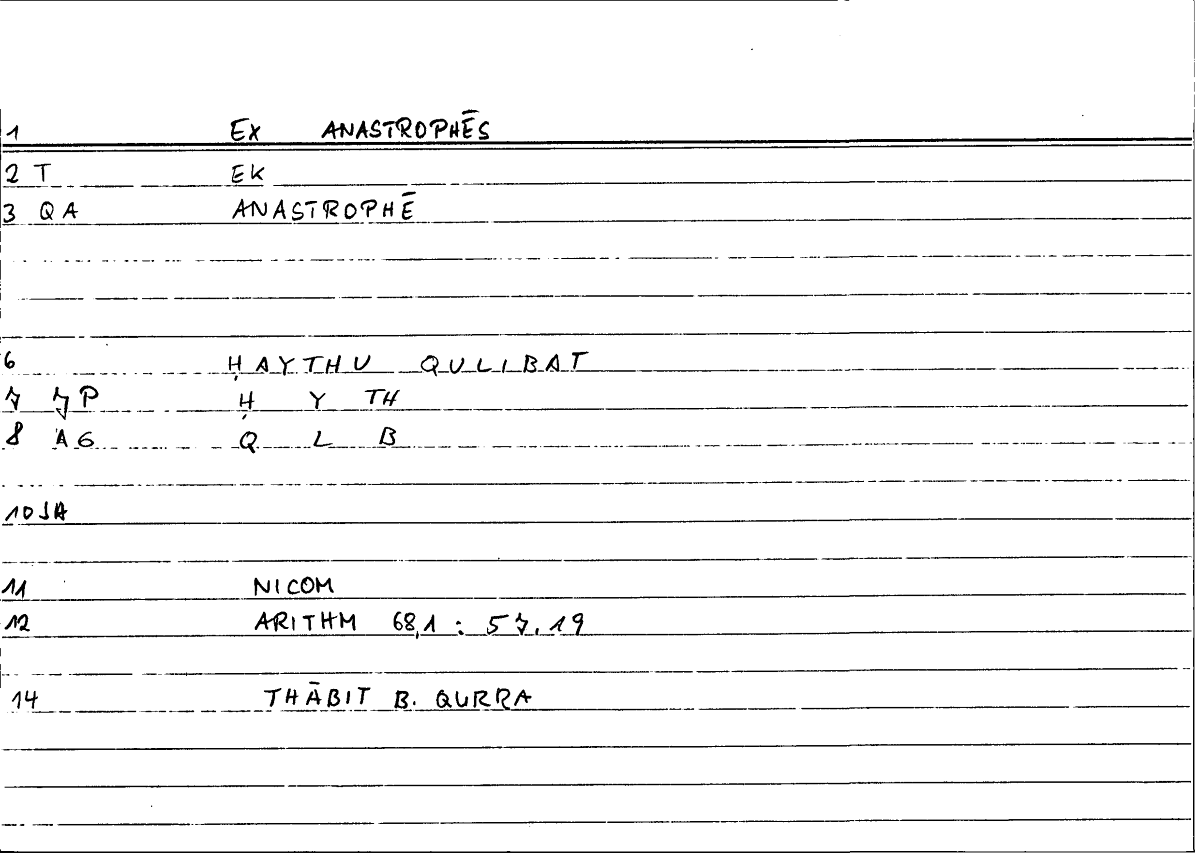 1 EX ANASTROPHĒS
2 T EK
3 QA ANASTROPHĒ
6 ḤAYTHU QULIBAT
7 7P Ḥ Y TH
8 A6 Q L B
10 JA
11 NICOM
12 ARITHM 68,1 : 57.19
14 THĀBIT B. QURRA